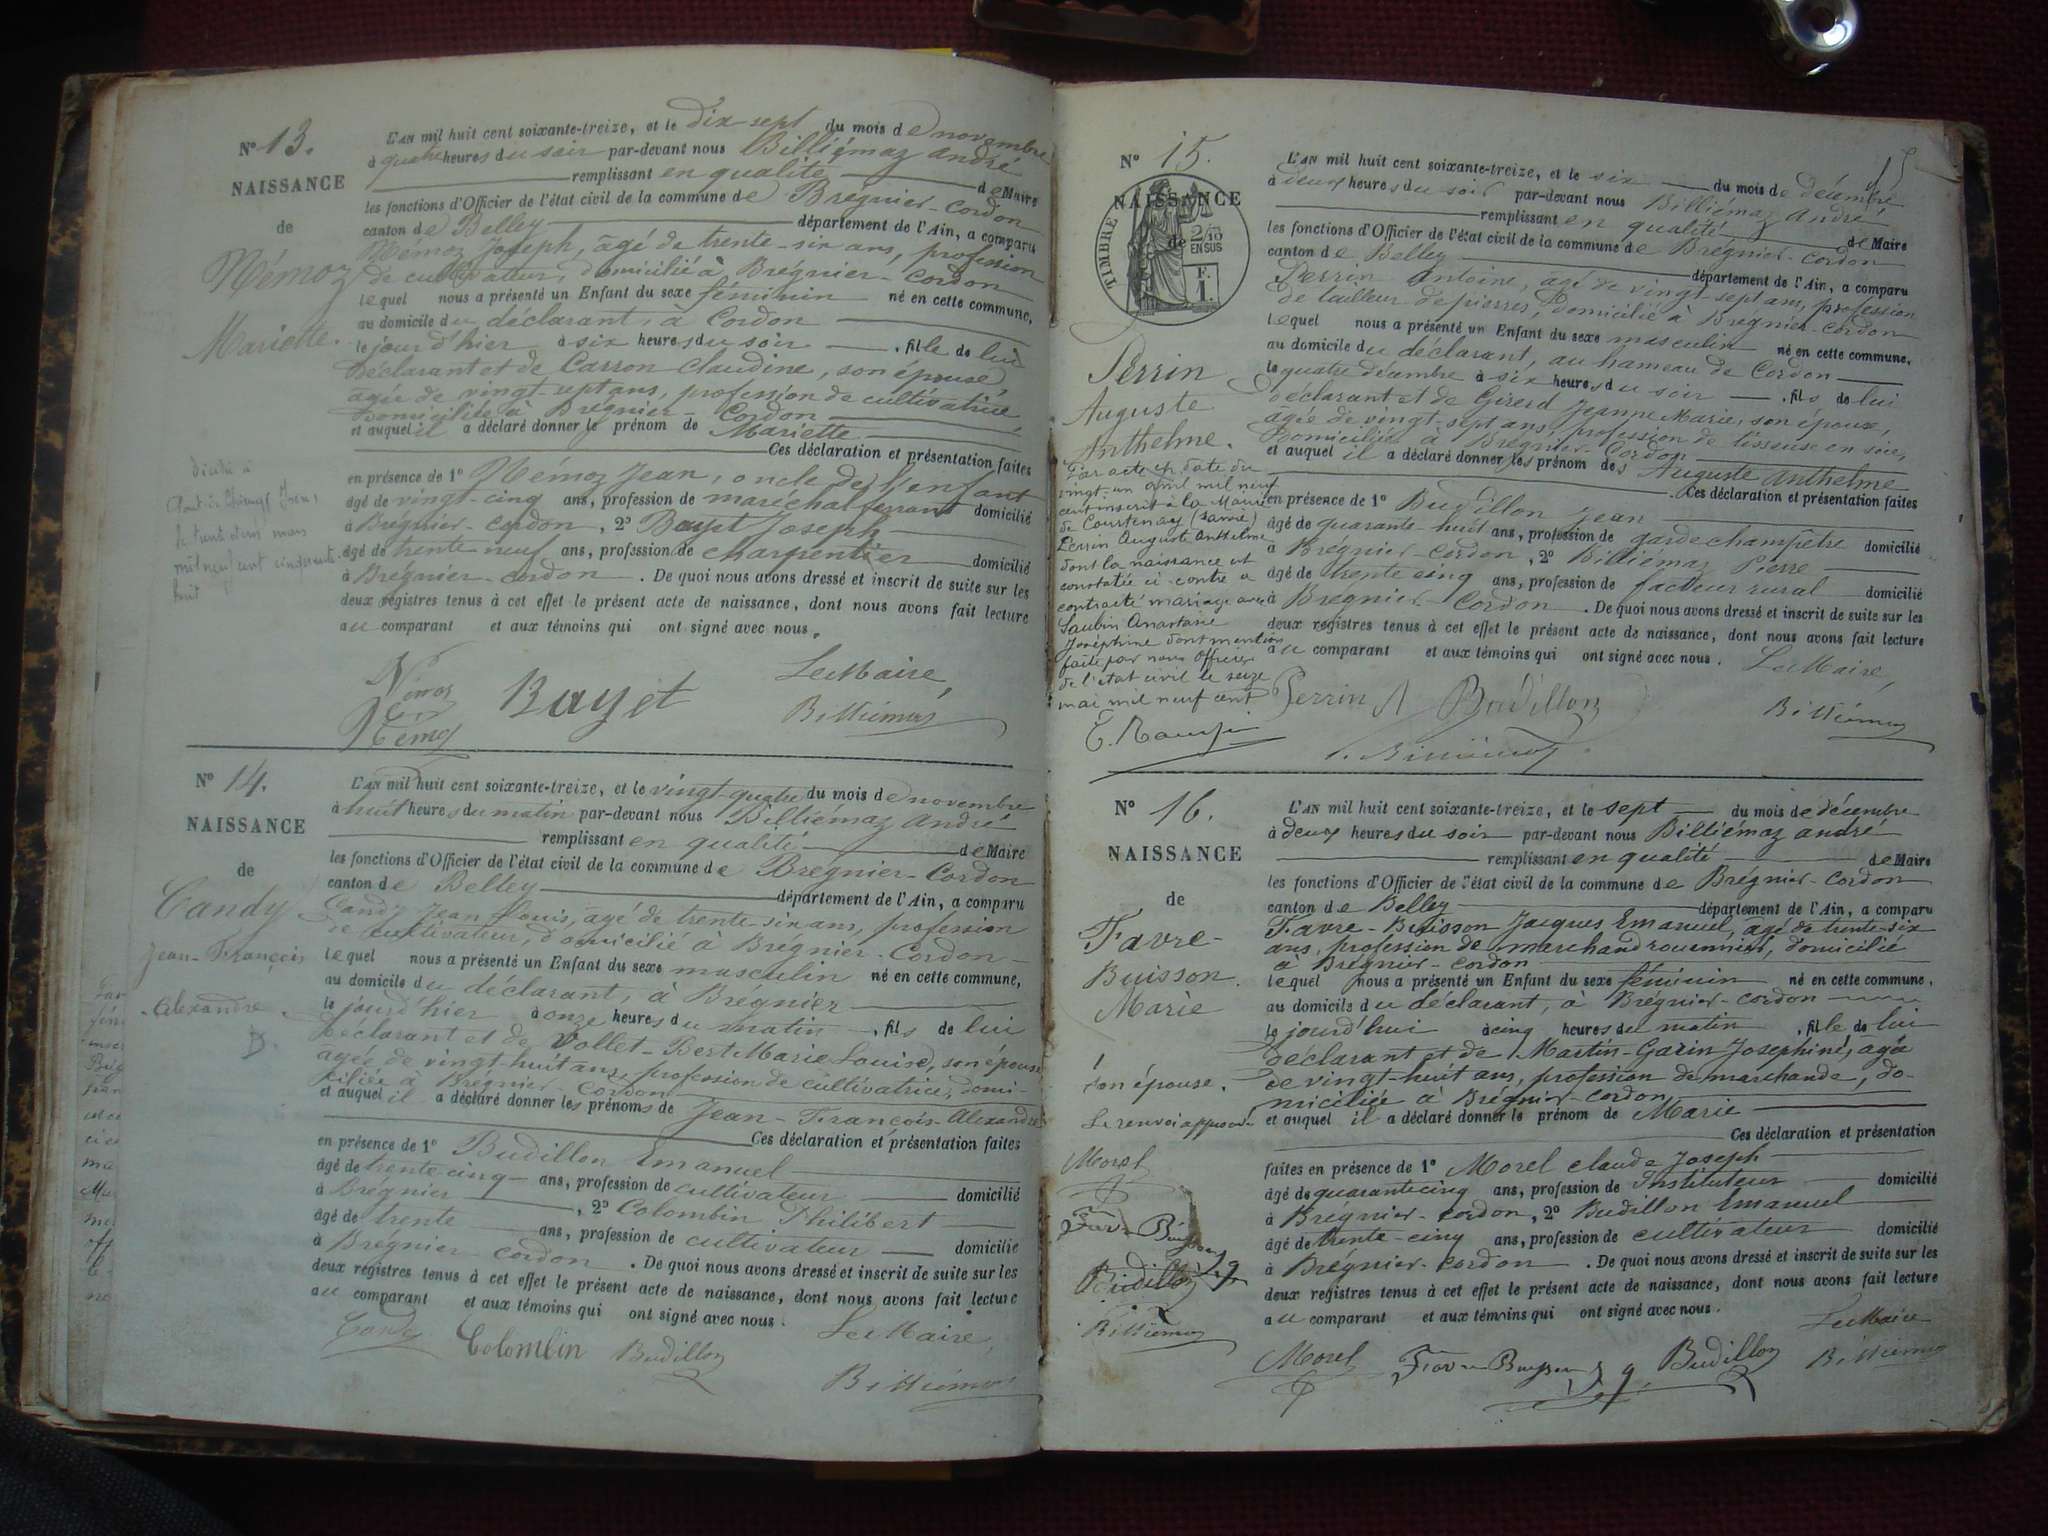 N° 13.
NAISSANCE
de
Némoz
Mariette.
L'AN mil huit cent soixante-treize, et le dix sept du mois de novembre
à quatre heures du soir par-devant nous Billiémaz André
remplissant en qualité de Maire
les fonctions d'Officier de l'état civil de la commune de Brégnier-Cordon
canton de Belley département de l'Ain, a comparu
Némoz Joseph, âgé de trente-six ans, profession
de cultivateur, domicilié à Brégnier-Cordon
lequel nous a présenté un Enfant du sexe féminin né en cette commune,
au domicile du déclarant, à Cordon
le jour d'hier à six heures du soir, fille de lui
déclarant et de Carron Claudine, son épouse,
agée de vingt-sept ans, profession de cultivatrice,
domiciliée à Brégnier-Cordon
et auquel il a déclaré donner le prénom de Mariette
Ces déclaration et présentation faites
en présence de 1° Némoz Jean, oncle de l'enfant
âgé de vingt-cinq ans, profession de maréchal ferrant domicilié
à Brégnier-Cordon, 2° Bayet Joseph
âgé de trente neuf ans, profession de charpentier domicilié
à Brégnier-Cordon. De quoi nous avons dressé et inscrit de suite sur les
deux registres tenus à cet effet le présent acte de naissance, dont nous avons fait lecture
au comparant et aux témoins qui ont signé avec nous.
décédée à
le trente et un mars
mil neuf cent cinquante
huit
Némoz
Bayet
Le Maire,
Némoz
Billiémaz
N° 14.
NAISSANCE
de
Candy
Jean-François
Alexandre.
L'AN mil huit cent soixante-treize, et le vingt-quatre du mois de novembre
à huit heures du matin par-devant nous Billiémaz André
remplissant en qualité de Maire
les fonctions d'Officier de l'état civil de la commune de Brégnier-Cordon
canton de Belley département de l'Ain, a comparu
Candy Jean Louis, âgé de trente-six ans, profession
de cultivateur, domicilié à Brégnier-Cordon
lequel nous a présenté un Enfant du sexe masculin né en cette commune,
au domicile du déclarant, à Brégnier
le jour d'hier à onze heures du matin, fils de lui
déclarant et de Vollet-Bert Marie Louise, son épouse
agée de vingt-huit ans, profession de cultivatrice, domi-
ciliée à Brégnier-Cordon
et auquel il a déclaré donner les prénoms de Jean-François Alexandre
Ces déclaration et présentation faites
en présence de 1° Budillon Emanuel
âgé de trente cinq ans, profession de cultivateur domicilié
à Brégnier, 2° Colombin Philibert
âgé de trente ans, profession de cultivateur domicilié
à Brégnier-Cordon. De quoi nous avons dressé et inscrit de suite sur les
deux registres tenus à cet effet le présent acte de naissance, dont nous avons fait lecture
au comparant et aux témoins qui ont signé avec nous.
Candy Colombin Budillon Le Maire,
Billiémaz
15
N° 15.
NAISSANCE
de
TIMBRE
2/10
EN SUS
F.
1.
Perrin
Auguste
Anthelme.
Par acte en date du
vingt-un avril mil neuf
cent inscrit à la Mairie
de Courtenay (Isère)
Perrin Auguste Anthelme
dont la naissance est
constatée ci-contre a
contracté mariage avec
Saubin Anastasie
Joséphine dont mention
faite par nous Officier
de l'état civil le seize
mai mil neuf cent
L'AN mil huit cent soixante-treize, et le six du mois de décembre
à deux heures du soir par-devant nous Billiémaz André
remplissant en qualité de Maire
les fonctions d'Officier de l'état civil de la commune de Brégnier-Cordon
canton de Belley département de l'Ain, a comparu
Perrin Antoine, agé de vingt-sept ans, profession
de tailleur de pierres, domicilié à Brégnier-Cordon
lequel nous a présenté un Enfant du sexe masculin né en cette commune,
au domicile du déclarant, au hameau de Cordon
le quatre décembre à six heures du soir, fils de lui
déclarant et de Girerd Jeanne Marie, son épouse,
agée de vingt-sept ans, profession de tisseuse en soie,
domiciliée à Brégnier-Cordon
et auquel il a déclaré donner les prénom des Auguste Anthelme
Ces déclaration et présentation faites
en présence de 1° Budillon Jean
âgé de quarante-huit ans, profession de garde champêtre domicilié
à Brégnier-Cordon, 2° Billiémaz Pierre
âgé de trente cinq ans, profession de facteur rural domicilié
à Brégnier-Cordon. De quoi nous avons dressé et inscrit de suite sur les
deux registres tenus à cet effet le présent acte de naissance, dont nous avons fait lecture
au comparant et aux témoins qui ont signé avec nous. Le Maire,
Perrin A Budillon
Billiémaz
Billiémaz
N° 16.
NAISSANCE
de
Favre-
Buisson
Marie
son épouse.
Le renvoi approuvé
Morel
Favre Buisson
Budillon
Billiémaz
L'AN mil huit cent soixante-treize, et le sept du mois de décembre
à deux heures du soir par-devant nous Billiémaz André
remplissant en qualité de Maire
les fonctions d'Officier de l'état civil de la commune de Brégnier-Cordon
canton de Belley département de l'Ain, a comparu
Favre-Buisson Jacques Emanuel, agé de trente-six
ans, profession de marchand rouennier, domicilié
à Brégnier-Cordon
lequel nous a présenté un Enfant du sexe féminin né en cette commune,
au domicile du déclarant, à Brégnier-Cordon
le jourd'hui à cinq heures du matin, fille de lui
déclarant et de Martin-Garin Josephine, agée
de vingt-huit ans, profession de marchande, do-
miciliée à Brégnier-Cordon
et auquel il a déclaré donner le prénom de Marie
Ces déclaration et présentation
faites en présence de 1° Morel Claude Joseph
âgé de quarante cinq ans, profession de Instituteur domicilié
à Brégnier-Cordon, 2° Budillon Emanuel
âgé de trente-cinq ans, profession de cultivateur domicilié
à Brégnier-Cordon. De quoi nous avons dressé et inscrit de suite sur les
deux registres tenus à cet effet le présent acte de naissance, dont nous avons fait lecture
au comparant et aux témoins qui ont signé avec nous.
Le Maire
Morel Favre Buisson Budillon Billiémaz